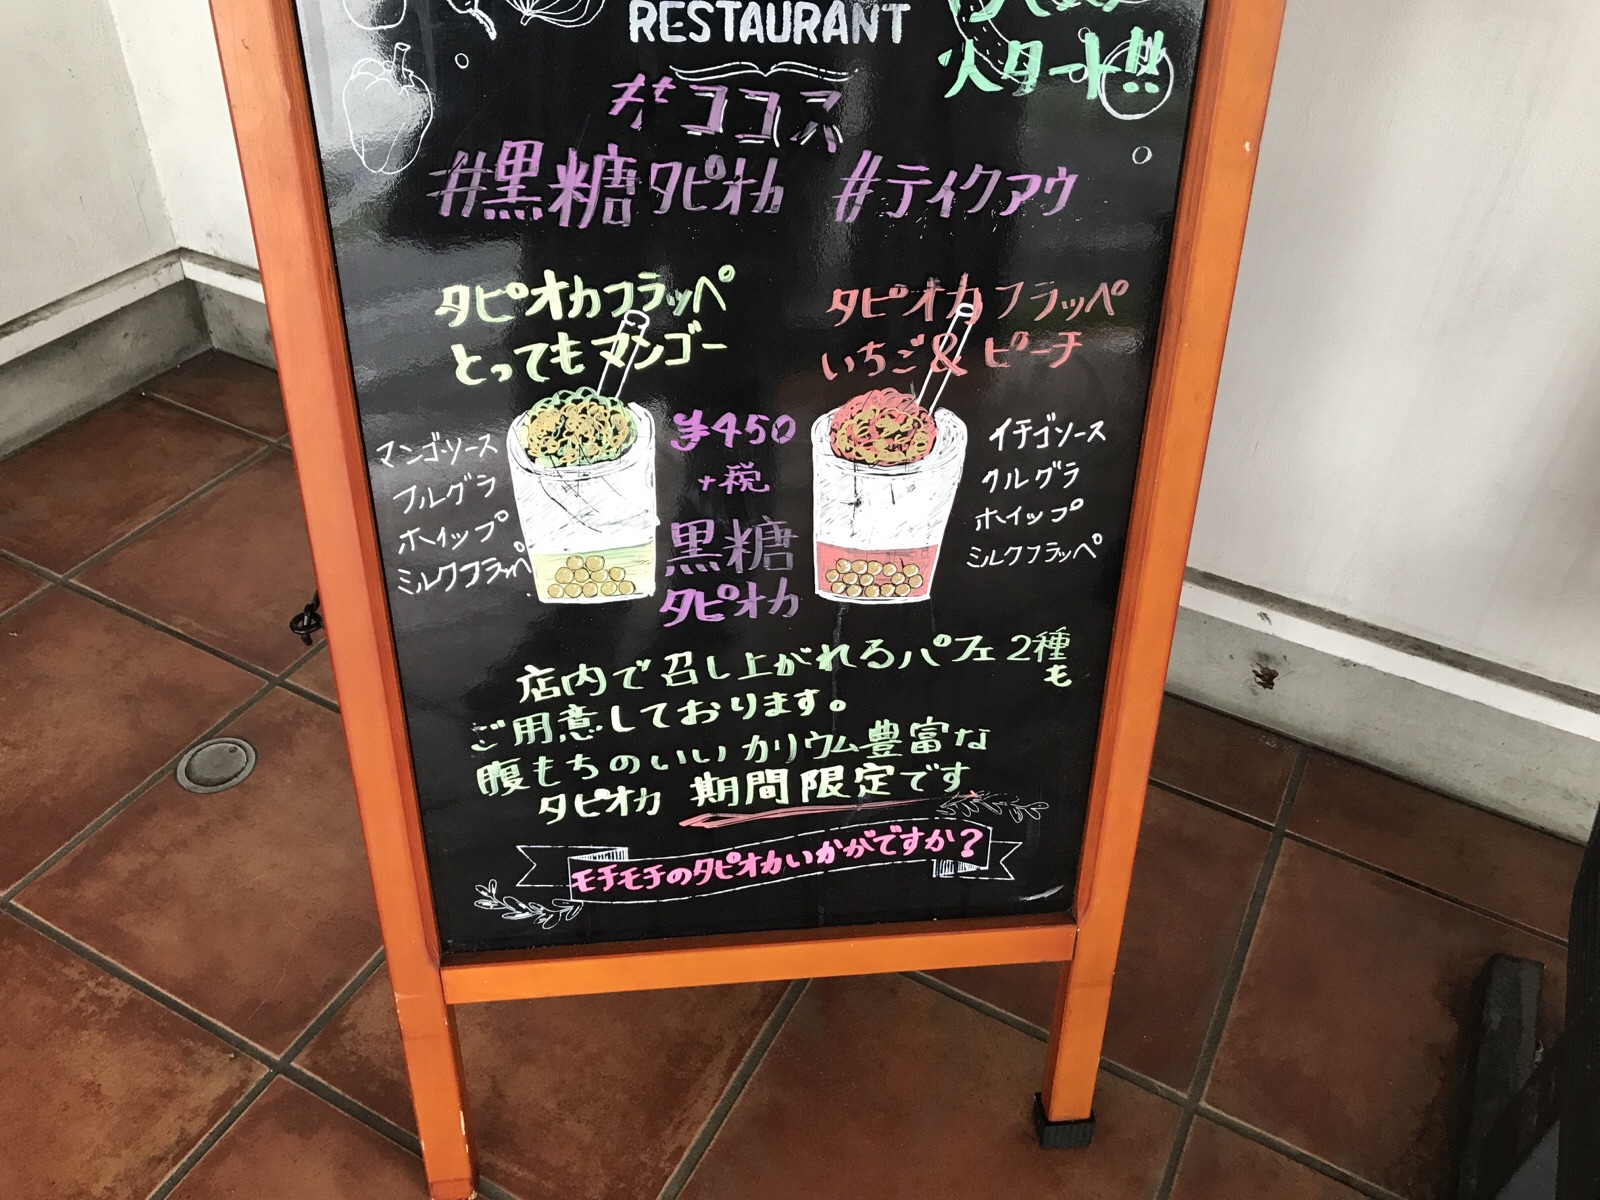 RESTAURANT
スタート!!
#ココス
#黒糖タピオカ #ティクアウ
タピオカフラッペ
とってもマンゴー
タピオカフラッペ
いちご&ピーチ
マンゴーソース
フルグラ
ホイップ
ミルクフラッペ
¥450
+税
黒糖
タピオカ
イチゴソース
クルグラ
ホイップ
ミルクフラッペ
店内で召し上がれるパフェ2種
も
ご用意しております。
腹もちのいいカリウム豊富な
タピオカ 期間限定です
モチモチのタピオカいかがですか?